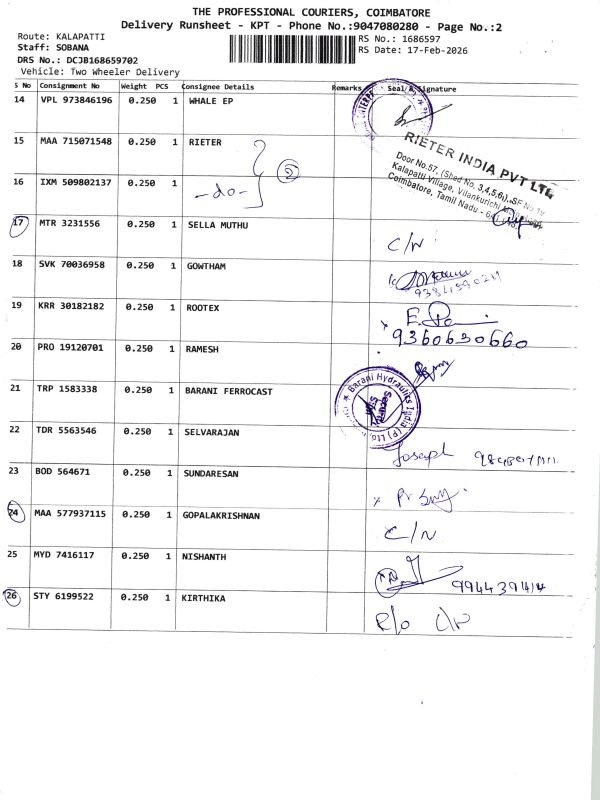 THE PROFESSIONAL COURIERS, COIMBATORE
Delivery Runsheet - KPT - Phone No.:9047080280 - Page No.:2
Route: KALAPATTI
Staff: SOBANA
DRS No.: DCJB168659702
Vehicle: Two Wheeler Delivery
RS No.: 1686597
RS Date: 17-Feb-2026
S No Consignment No Weight PCS Consignee Details Remarks Seal & Signature
14 VPL 973846196 0.250 1 WHALE EP
15 MAA 715071548 0.250 1 RIETER
2
RIETER INDIA PVT LTD
Door No.57, (Shed No. 3,4,5,6), SF No.
Kalapatti Village, Vilankurichi
Coimbatore, Tamil Nadu -
16 IXM 509802137 0.250 1 -do-
17 MTR 3231556 0.250 1 SELLA MUTHU C/N
18 SVK 70036958 0.250 1 GOWTHAM
19 KRR 30182182 0.250 1 ROOTEX 9360630660
20 PRO 19120701 0.250 1 RAMESH
21 TRP 1583338 0.250 1 BARANI FERROCAST
Barani Hydraulics India (P) Ltd.
22 TDR 5563546 0.250 1 SELVARAJAN Joseph
23 BOD 564671 0.250 1 SUNDARESAN
24 MAA 577937115 0.250 1 GOPALAKRISHNAN C/N
25 MYD 7416117 0.250 1 NISHANTH
26 STY 6199522 0.250 1 KIRTHIKA R/o C/N